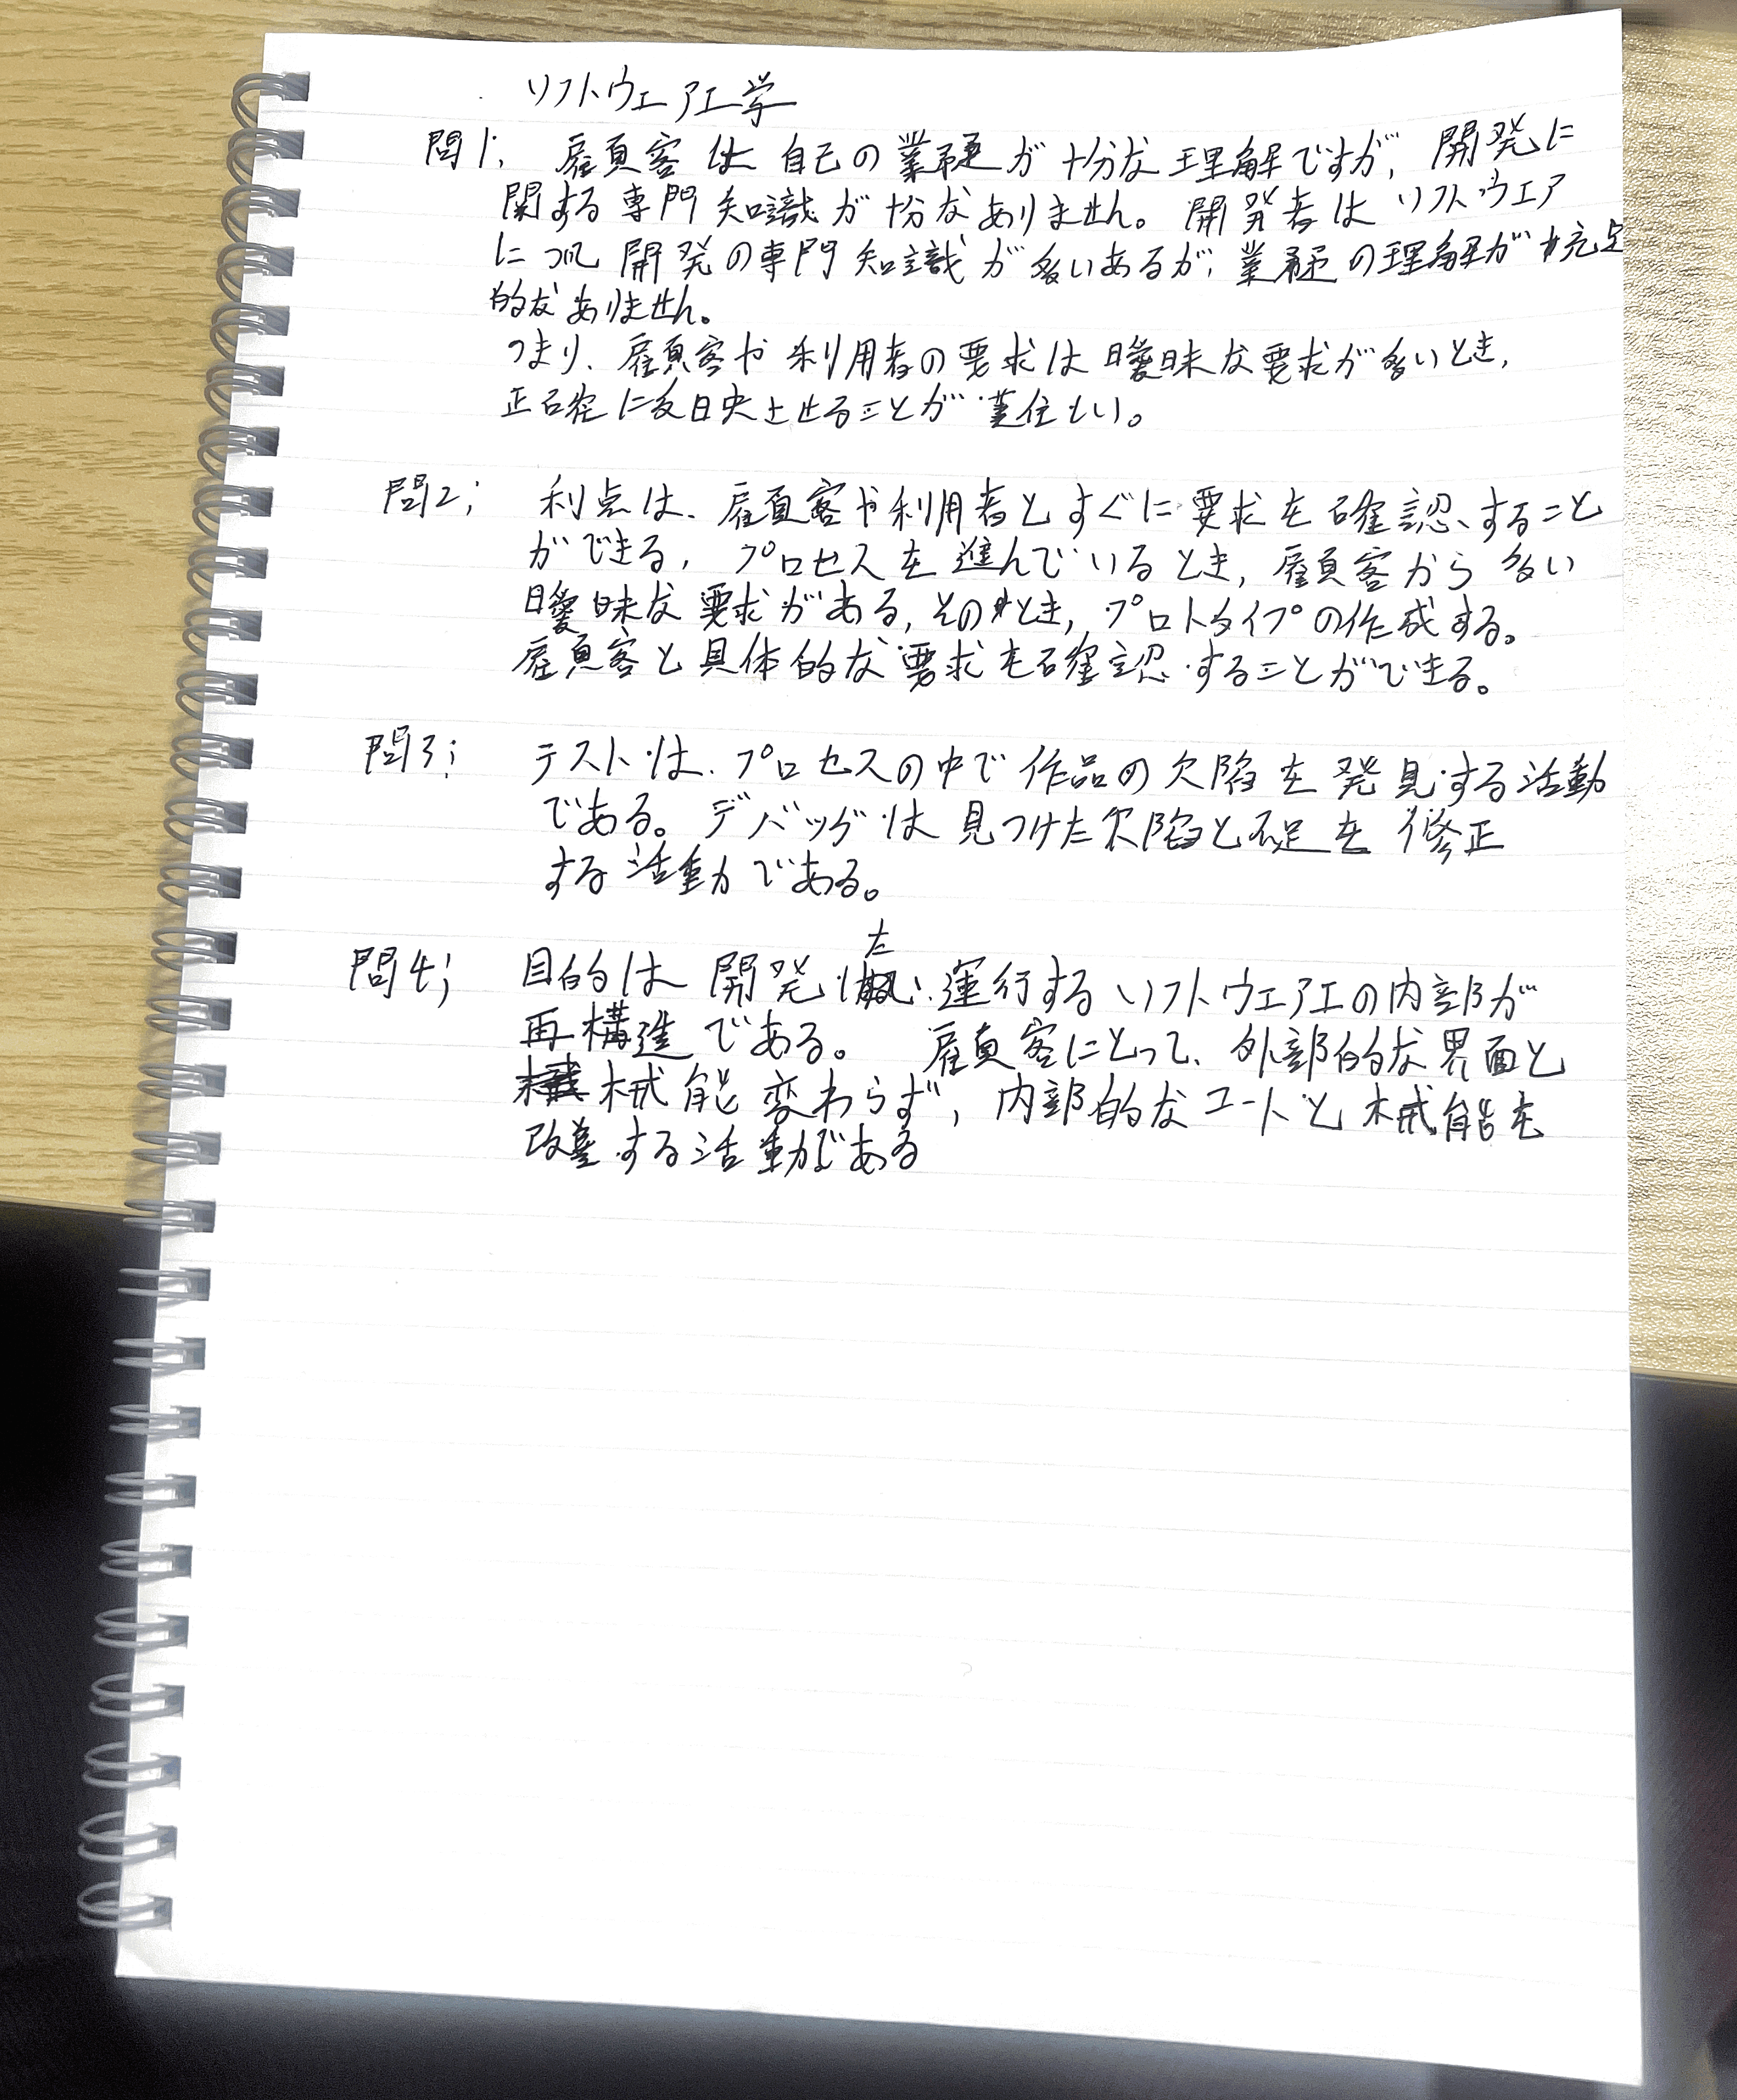 ソフトウェア工学
問1; 顧客は自己の業種が十分な理解ですが, 開発に
関する専門知識が十分なありません。開発者はソフトウェア
について開発の専門知識が多いあるが, 業種の理解が充足
的なありません。
つまり、顧客や利用者の要求は曖昧な要求が多いとき,
正確に反映させることが難しい。
問2; 利点は、顧客や利用者とすぐに要求を確認すること
ができる, プロセスを進んでいるとき, 顧客から多い
曖昧な要求がある, そのとき, プロトタイプの作成する。
顧客と具体的な要求を確認することができる。
問3; テストは、プロセスの中で作品の欠陥を発見する活動
である。デバッグは見つけた欠陥と不足を修正
する活動である。
問4; 目的は開発た運行するソフトウェア工の内部が
再構造である。 顧客にとって、外部的な界面と
械能変わらず, 内部的なコートと械能を
改善する活動である